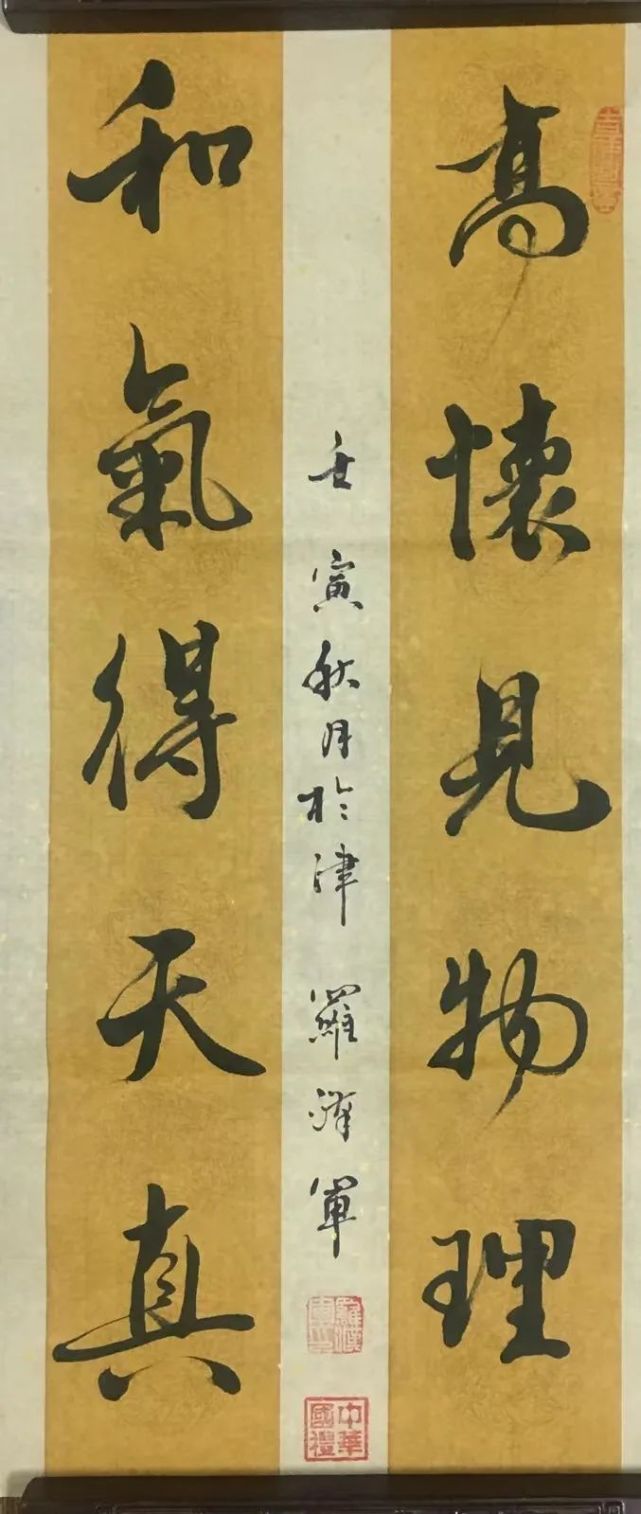 高懷見物理
和氣得天真
壬寅秋月於津 羅濟軍
中華國禮